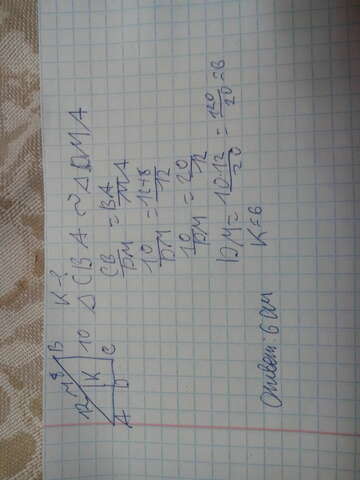 B K-?
12 M 8
K 10
A D C
Δ CBA ~ Δ DMA
CB/DM = BA/MA
10/DM = 12+8/12
10/DM = 20/12
DM = 10·12/20 = 120/20 = 6
K = 6
Ответ: 6 см